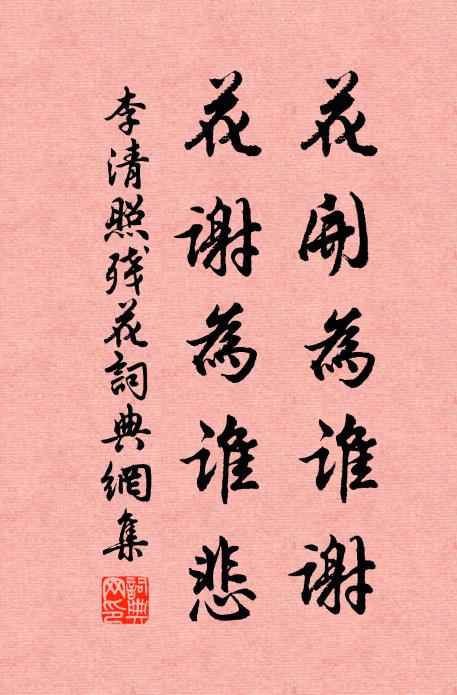 花開為誰謝
花謝為誰悲
李清照殘花詞典網集
詞典網印